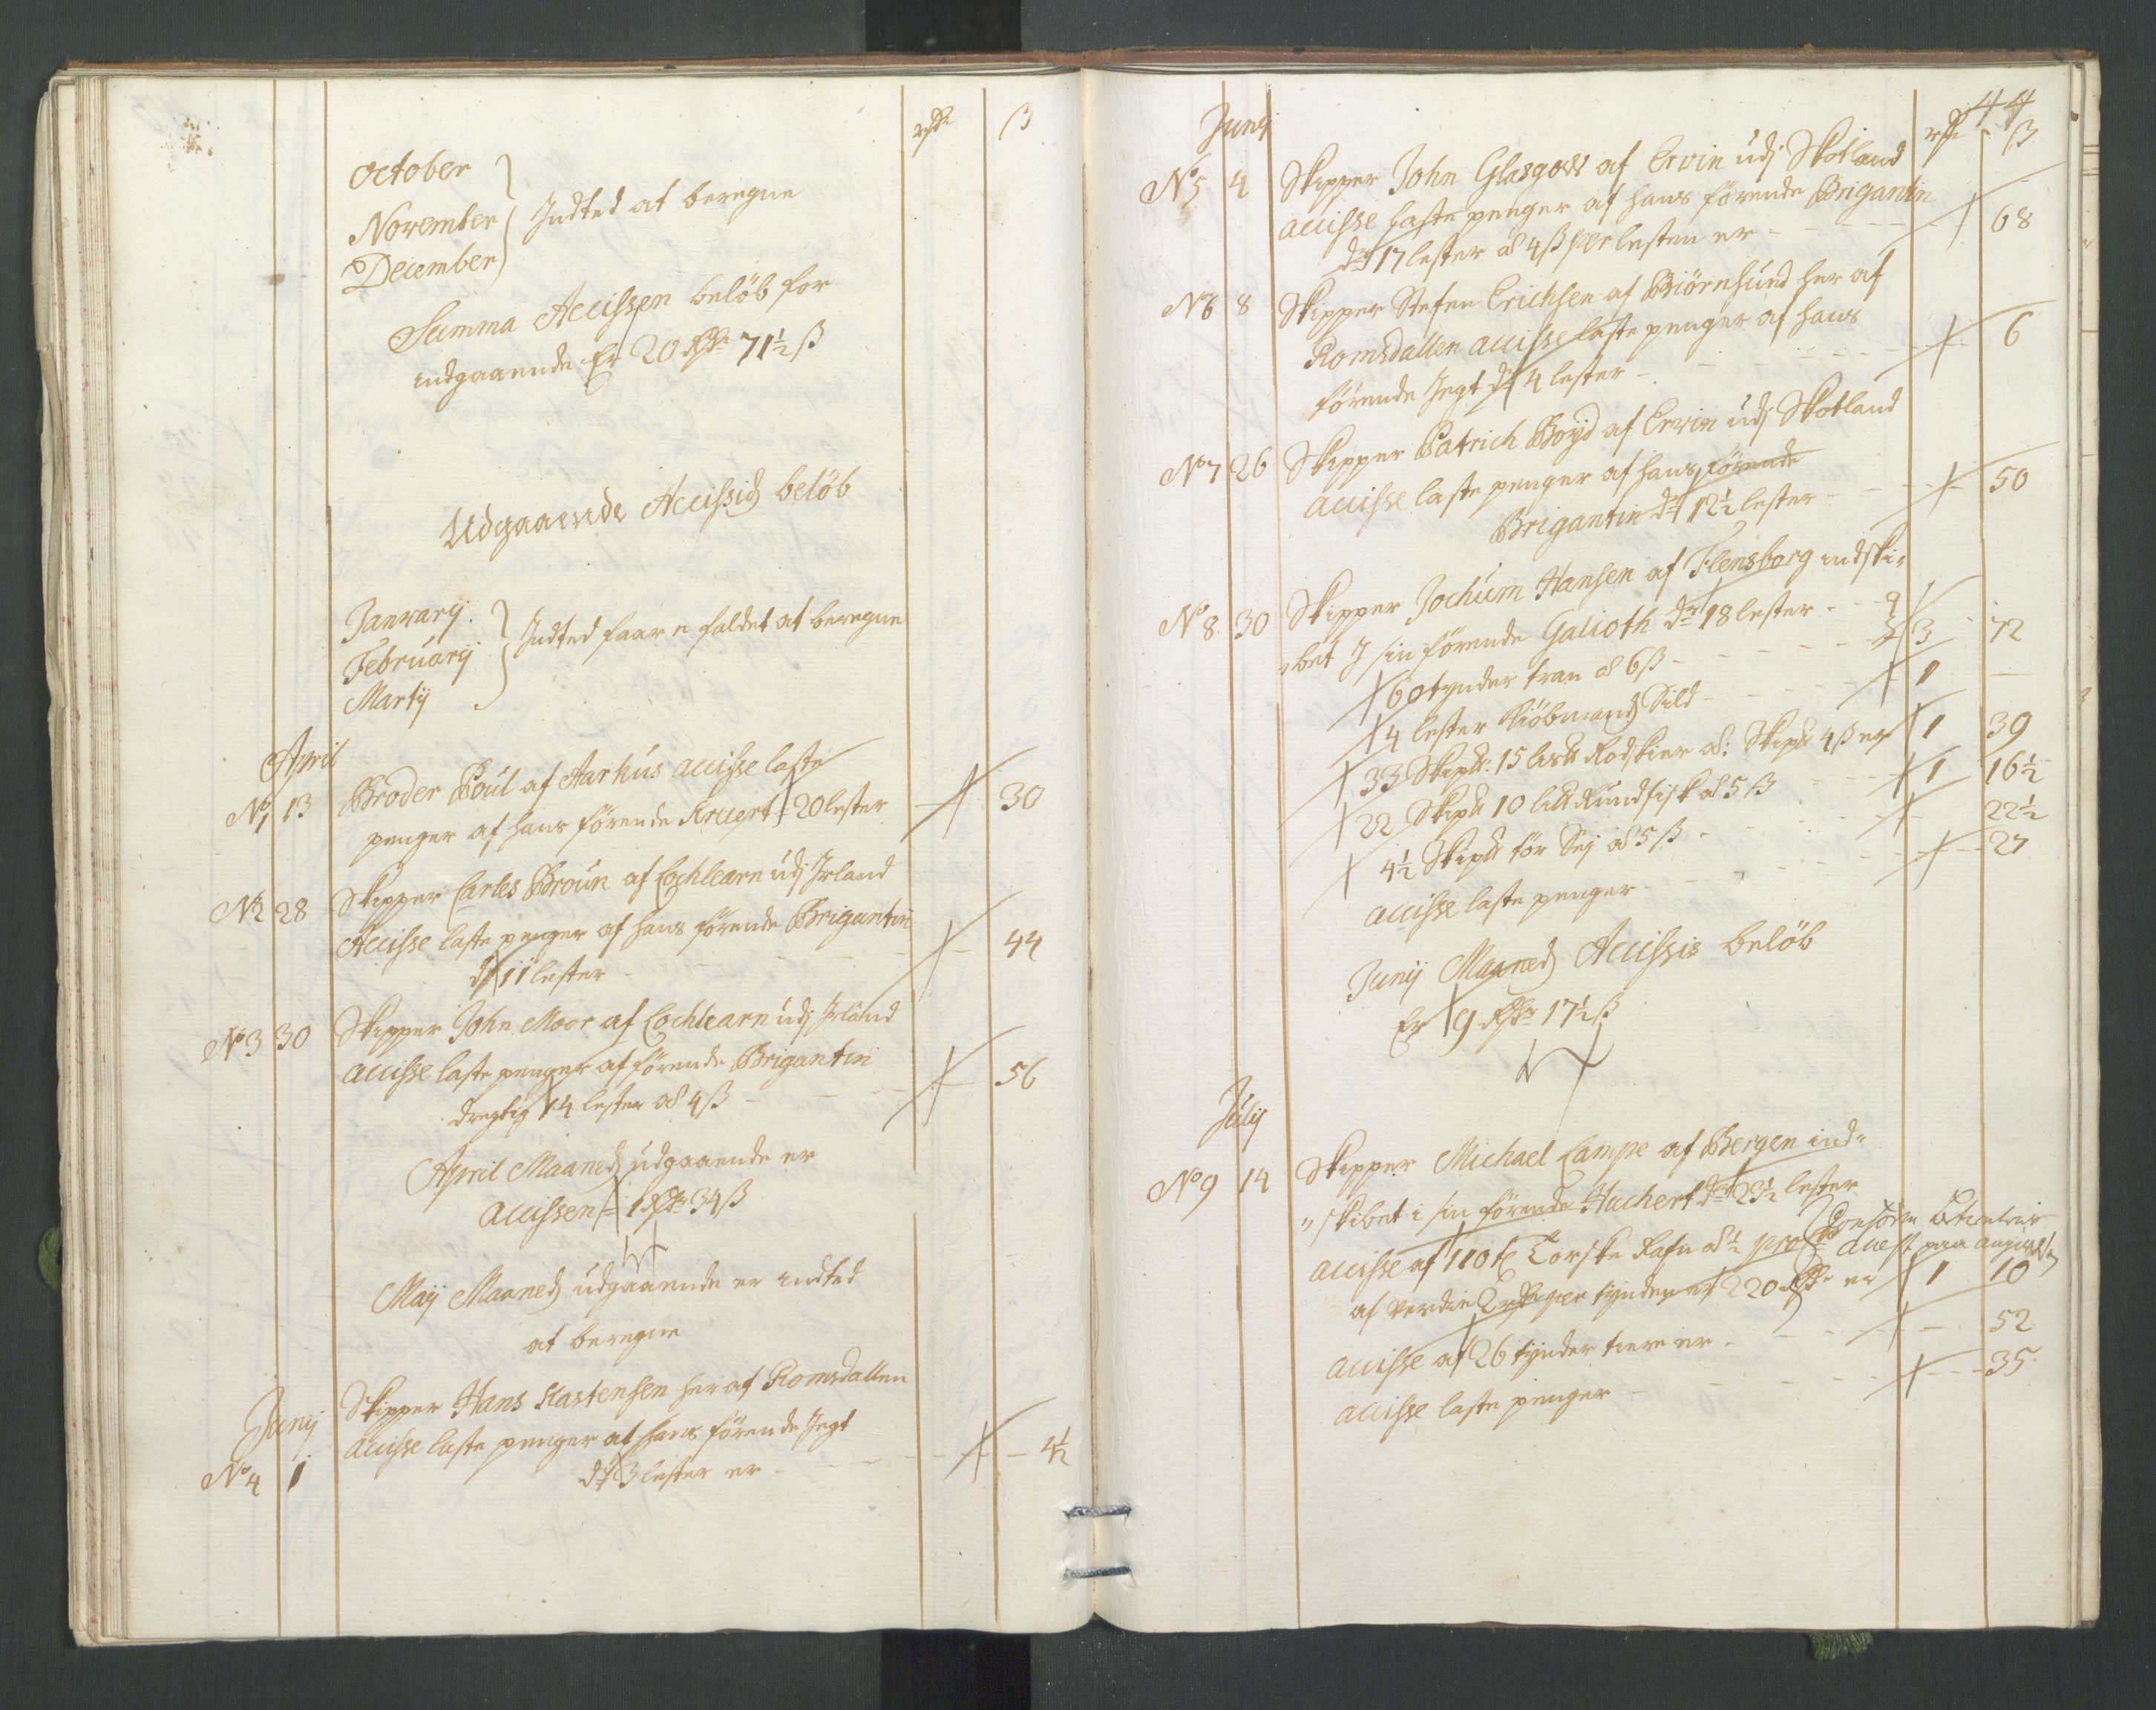 rdr ß
October
November Indted at beregne
December
Summa Accissen beløb for
indgaaende Er 20 Rdr 71½ ß
Udgaaende Accissis beløb
Janvarij
Februarij Indted faarefaldet at beregne
Martij
April
No 1 13 Broder Poul af Aarhus accisse laste
penger af hans førende Krejert 20 lester - 30
No 2 28 Skipper Carles Broun af Lochlearn udj Irland
Accisse laste penger af hans førende Brigantin
dr 11 lester - 44
No 3 30 Skipper John Moor af Lochlearn udj Irland
accisse laste penger af førende Brigantin
dregtig 14 lester à 4 ß - 56
April Maaneds udgaaende er
accissen = 1 Rdr 34 ß
Maij Maaneds udgaaende er indted
at beregne
Junij Skipper Hans Kastensen her af Romsdallen
accisse laste penger af hans førende Jegt
No 4 1 dr 3 lester er - 4½
44
Junij rdr ß
No 5 4 Skipper John Glasgow af Ervin udj Skotland
accisse laste penger af hans førende Brigantin
dr 17 lester à 4 ß per lesten er - 68
No 6 8 Skipper Stefen Erichsen af Biørnsund her af
Romsdallen accisse laste penger af hans
førende Jegt dr 4 lester - 6
No 7 26 Skipper Patrich Boyd af Ervin udj Skotland
accisse laste penger af hans førende
Brigantin dr 12½ lester - 50
No 8 30 Skipper Jochum Hansen af Flensborg indski-
bet J sin førende Galioth dr 18 lester -
60 tynder tran à 6 ß - 3 72
4 lester Kiøbmands Sild - 1 -
33 Skip℔: 15 lis℔ Rodskier à: Skip℔ 4 ß er 1 39
22 Skip℔ 10 lis℔ Rundfisk à 5 ß 1 16½
4½ Skip℔ tør Sej à 5 ß - 22½
accisse laste penger - 27
Junij Maaneds Accissis beløb
Er 9 Rdr 17½ ß
Julij
No 9 14 Skipper Michael Lampe af Bergen ind-
skibet i sin førende Huckert dr 23½ lester
accisse af 110 t Torske Rafn à ½ pro Cto
af verdie 2 rdr per tynden af 220 Rdr er 1 10
accisse af 26 tynder tiere er - 52
accisse laste penger - 35